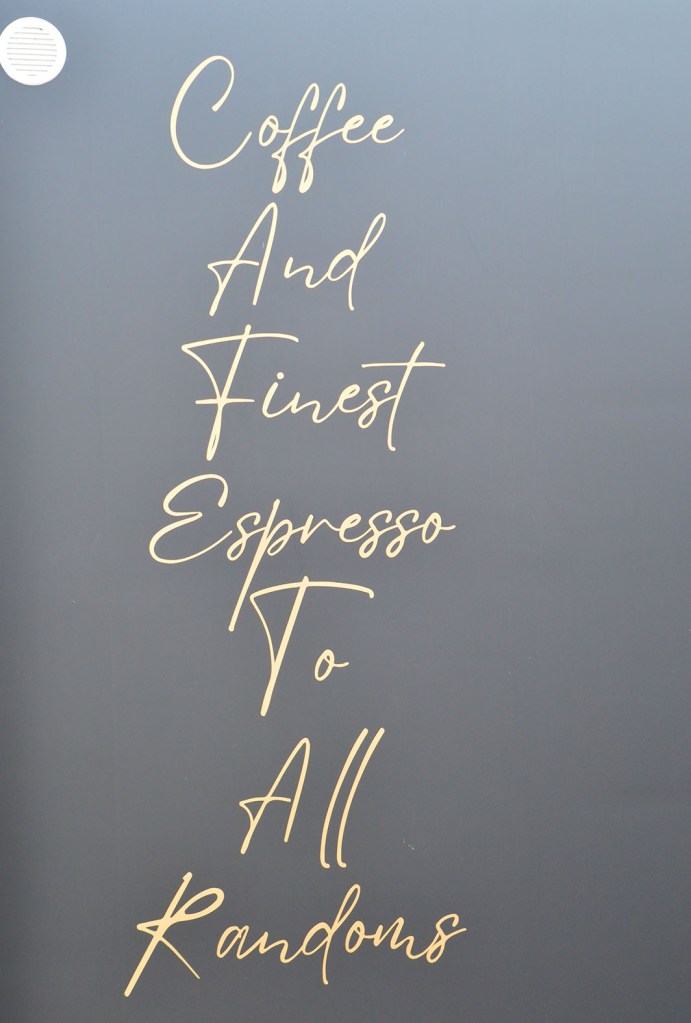 Coffee
And
Finest
Espresso
To
All
Randoms